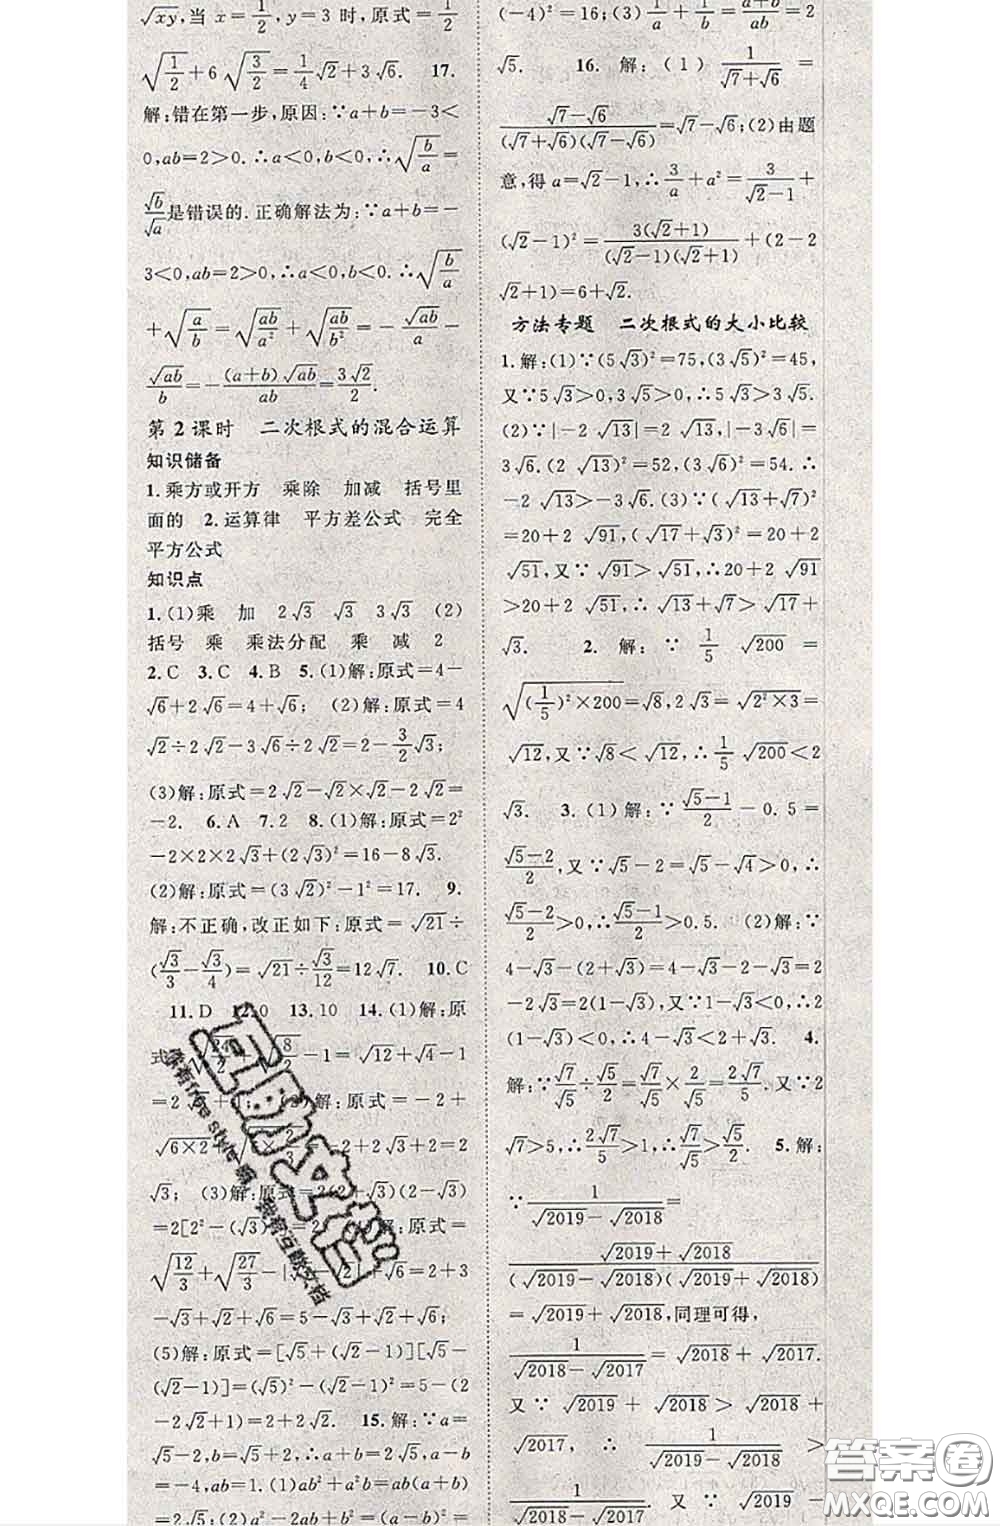 √xy,当 x=1/2,y=3 时,原式=1/2
√(1/2)+6√(3/2)=1/4√2+3√6. 17.
解:错在第一步,原因:∵a+b=-3<
0,ab=2>0.∴a<0,b<0.∴√(b/a)=
√b/√a是错误的.正确解法为:∵a+b=-
3<0,ab=2>0,∴a<0,b<0.∴√(b/a)
+√(a/b)=√(ab/a²)+√(ab/b²)=-√ab/a-
√ab/b=-(a+b)√ab/ab=3√2/2.
第2课时 二次根式的混合运算
知识储备
1.乘方或开方 乘除 加减 括号里
面的 2.运算律 平方差公式 完全
平方公式
知识点
1.(1)乘 加 2√3 √3 3√3 (2)
括号 乘 乘法分配 乘 减 2
2.C 3.C 4.B 5.(1)解:原式=4-
√6+2√6=4+√6; (2)解:原式=4
√2÷2√2-3√6÷2√2=2-3/2√3;
(3)解:原式=2√2-2×√2-2√2=
-2. 6.A 7.2 8.(1)解:原式=2²
-2×2×2√3+(2√3)²=16-8√3.
(2)解:原式=(3√2)²-1²=17. 9.
解:不正确,改正如下:原式=√21÷
(√3/3-√3/4)=√21÷√3/12=12√7. 10.C
11.D 12.0 13.10 14.(1)解:原
-1=√12+√4-1
解:原式=-2+
+2√3+2=2
√3; (3)解:原式=2(2+√3)(2-√3)
=2[2²-(√3)²]=2;
√(12/3)+√(27/3)-
+√6=2+3
-√3+√2+√6=5-√3+√2+√6;
(5)解:原式=[√5+(√2-1)][√5-
(√2-1)]=(√5)²-(√2-1)²=5-(2
-2√2+1)=2+2√2. 15.解:∵a=
√5-2,b=√5+2,∴a+b=2√5,a-b
=-4,ab=1.(1)ab²+a²b=ab(a+b)
(-4)²=16;(3)1/a+1/b=(a+b)/ab=2
√5. 16.解:(1)1/(√7+√6)=
(√7-√6)/((√7+√6)(√7-√6))=√7-√6;(2)由题
意,得 a=√2-1,∴3/a+a²=3/(√2-1)+
(√2-1)²=3(√2+1)/((√2-1)(√2+1))+(2-2
√2+1)=6+√2.
方法专题 二次根式的大小比较
1.解:(1)∵(5√3)²=75,(3√5)²=45,
又∵5√3>0,3√5>0,∴5√3>3√5.
(2)∵|-2√13|=2√13,|-3√6|=
3√6.(2√13)²=52,(3√6)²=54.∴
-2√13>-3√6.(3)∵(√13+√7)²
=20+2√91,(√17+√3)²=20+2
√51,又∵√91>√51,∴20+2√91
>20+2√51,∴√13+√7>√17+
√3. 2.解:∵1/5√200=
√((1/5)²×200)=√8,2√3=√(2²×3)=
√12,又∵√8<√12,∴1/5√200<2
√3. 3.(1)解:∵(√5-1)/2-0.5=
(√5-2)/2,又∵√5-2=√5-√4>0,∴
(√5-2)/2>0,∴(√5-1)/2>0.5. (2)解:∵
4-√3-(2+√3)=4-√3-2-√3=2
-2√3=2(1-√3),又∵1-√3<0,∴2
(1-√3)<0,∴4-√3<2+√3. 4.
解:∵√7/√5÷√5/2=√7/√5×2/√5=2√7/5.又∵2
√7>5,∴2√7/5>1,∴√7/√5>√5/2. 5.解:
∵1/(√2019-√2018)=
(√2019+√2018)/((√2019-√2018)(√2019+√2018))
=√2019+√2018,同理可得,
1/(√2018-√2017)=√2018+√2017.
又∵√2019+√2018>√2018+
√2017,∴1/(√2019-√2018)>
1/(√2018-√2017).又∵√2019-
答案圈
MXQE.COM